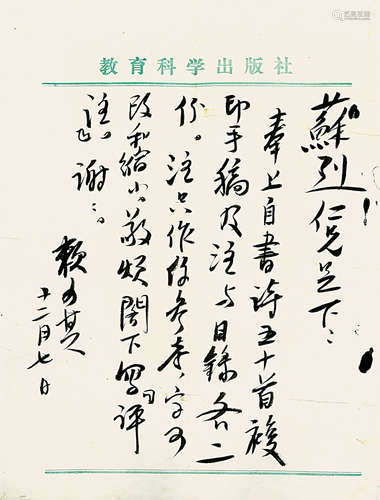 教育科学出版社
蘇烈仁兄足下：
奉上自書詩五十首複
印手稿及注与目録各二
份。注只作你参考，字可
改和缩小。敬烦閣下写评
注。谢谢。
賴少其
十二月七日